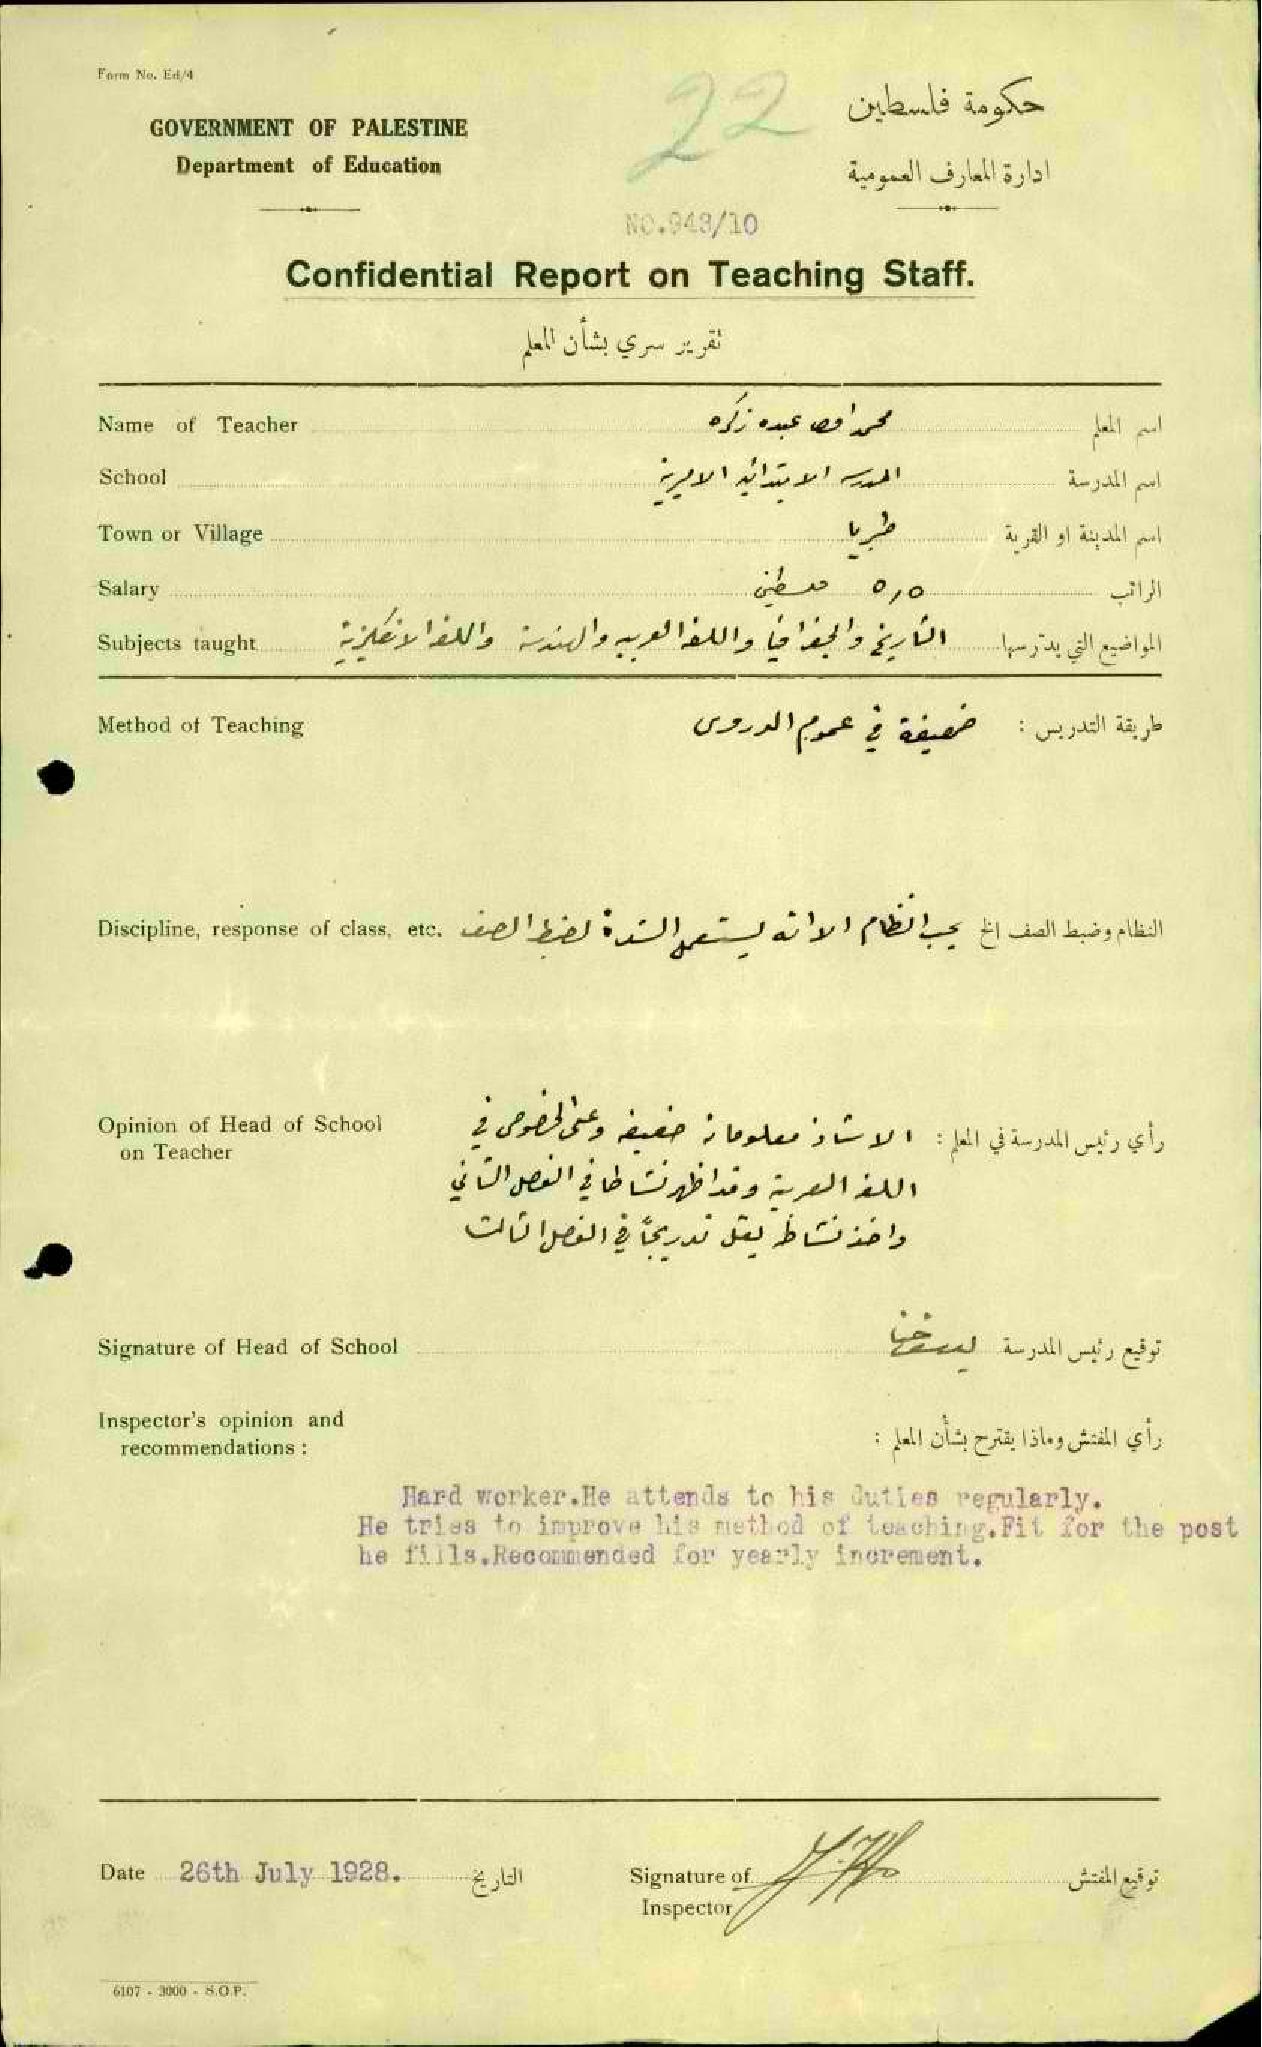 Form No. Ed/4
22
حكومة فلسطين
GOVERNMENT OF PALESTINE
Department of Education
ادارة المعارف العمومية
NO.943/10
Confidential Report on Teaching Staff.
تقرير سري بشأن المعلم
Name of Teacher محمد عبده اسم المعلم
School المدرسه الابتدائيه الاميرية اسم المدرسة
Town or Village طبريا اسم المدينة او القرية
Salary ٥٫٥ الراتب
Subjects taught التاريخ والجغرافيا واللغه العربيه والهندسة واللغه الانكليزية المواضيع التي يدرسها
Method of Teaching ضعيفة في عموم الدروس طريقة التدريس :
Discipline, response of class, etc. يحب النظام الا انه يستعمل الشدة لضبط الصف النظام وضبط الصف الخ
Opinion of Head of School
on Teacher
رأي رئيس المدرسة في المعلم : الاستاذ معلوماته ضعيفه وعلى الخصوص في
اللغه العربية وقد اظهر نشاطا في الفصل الثاني
واخذ نشاطه يقل تدريجاً في الفصل الثالث
Signature of Head of School توقيع رئيس المدرسة
Inspector's opinion and
recommendations :
رأي المفتش وماذا يقترح بشأن المعلم :
Hard worker.He attends to his duties regularly.
He tries to improve his method of teaching.Fit for the post
he fills.Recommended for yearly increment.
Date 26th July 1928. التاريخ
Signature of
Inspector
توقيع المفتش
6107 - 3000 - S.O.P.